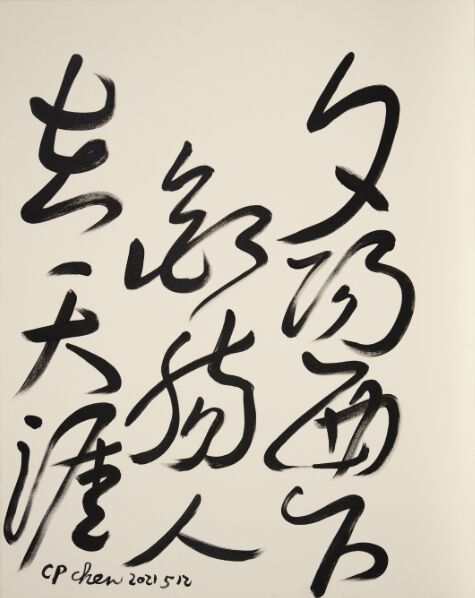 夕陽西下
斷腸人
在天涯
CP chen 2021 5 12